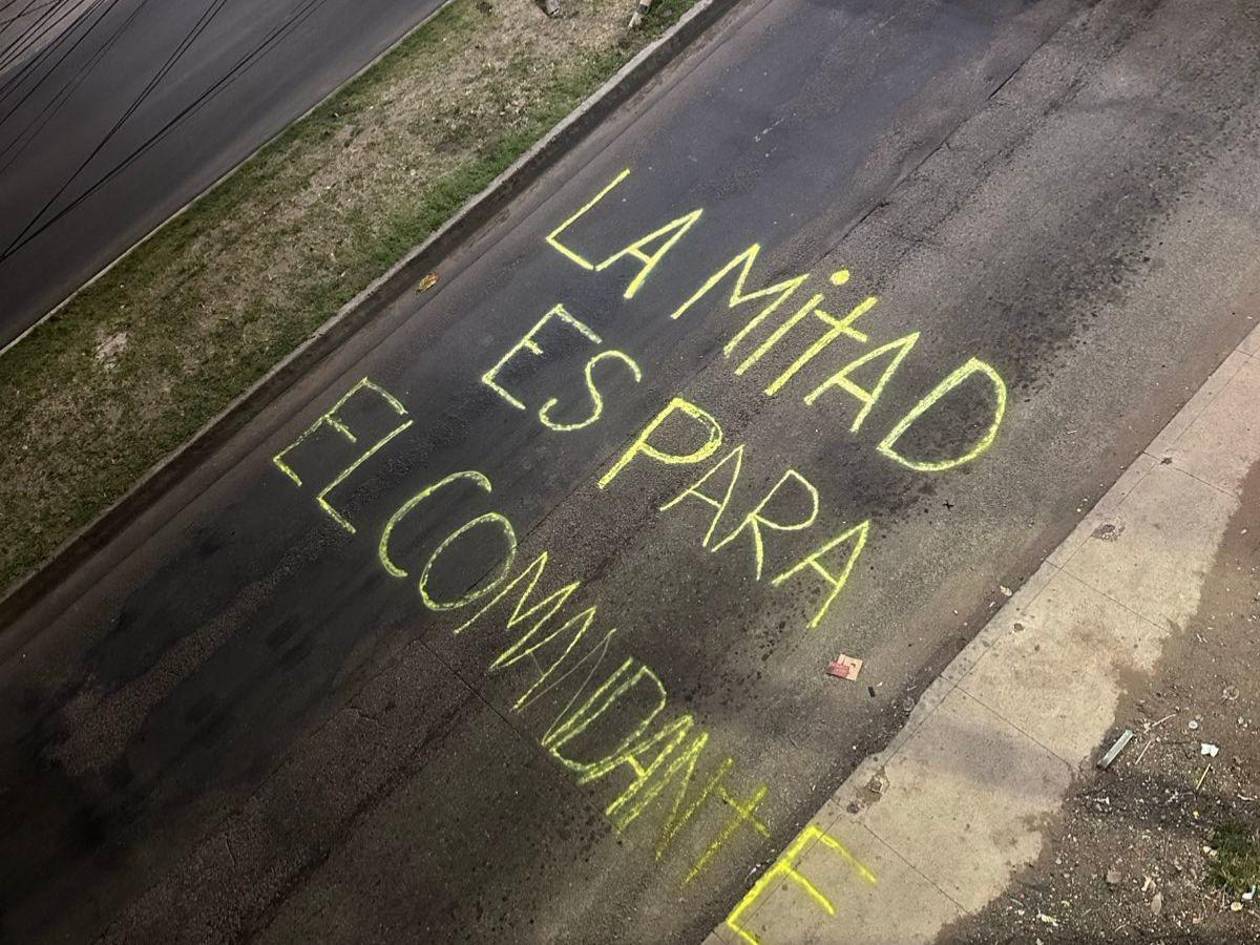 LA MiTAD
ES PARA
EL COMANDANTE